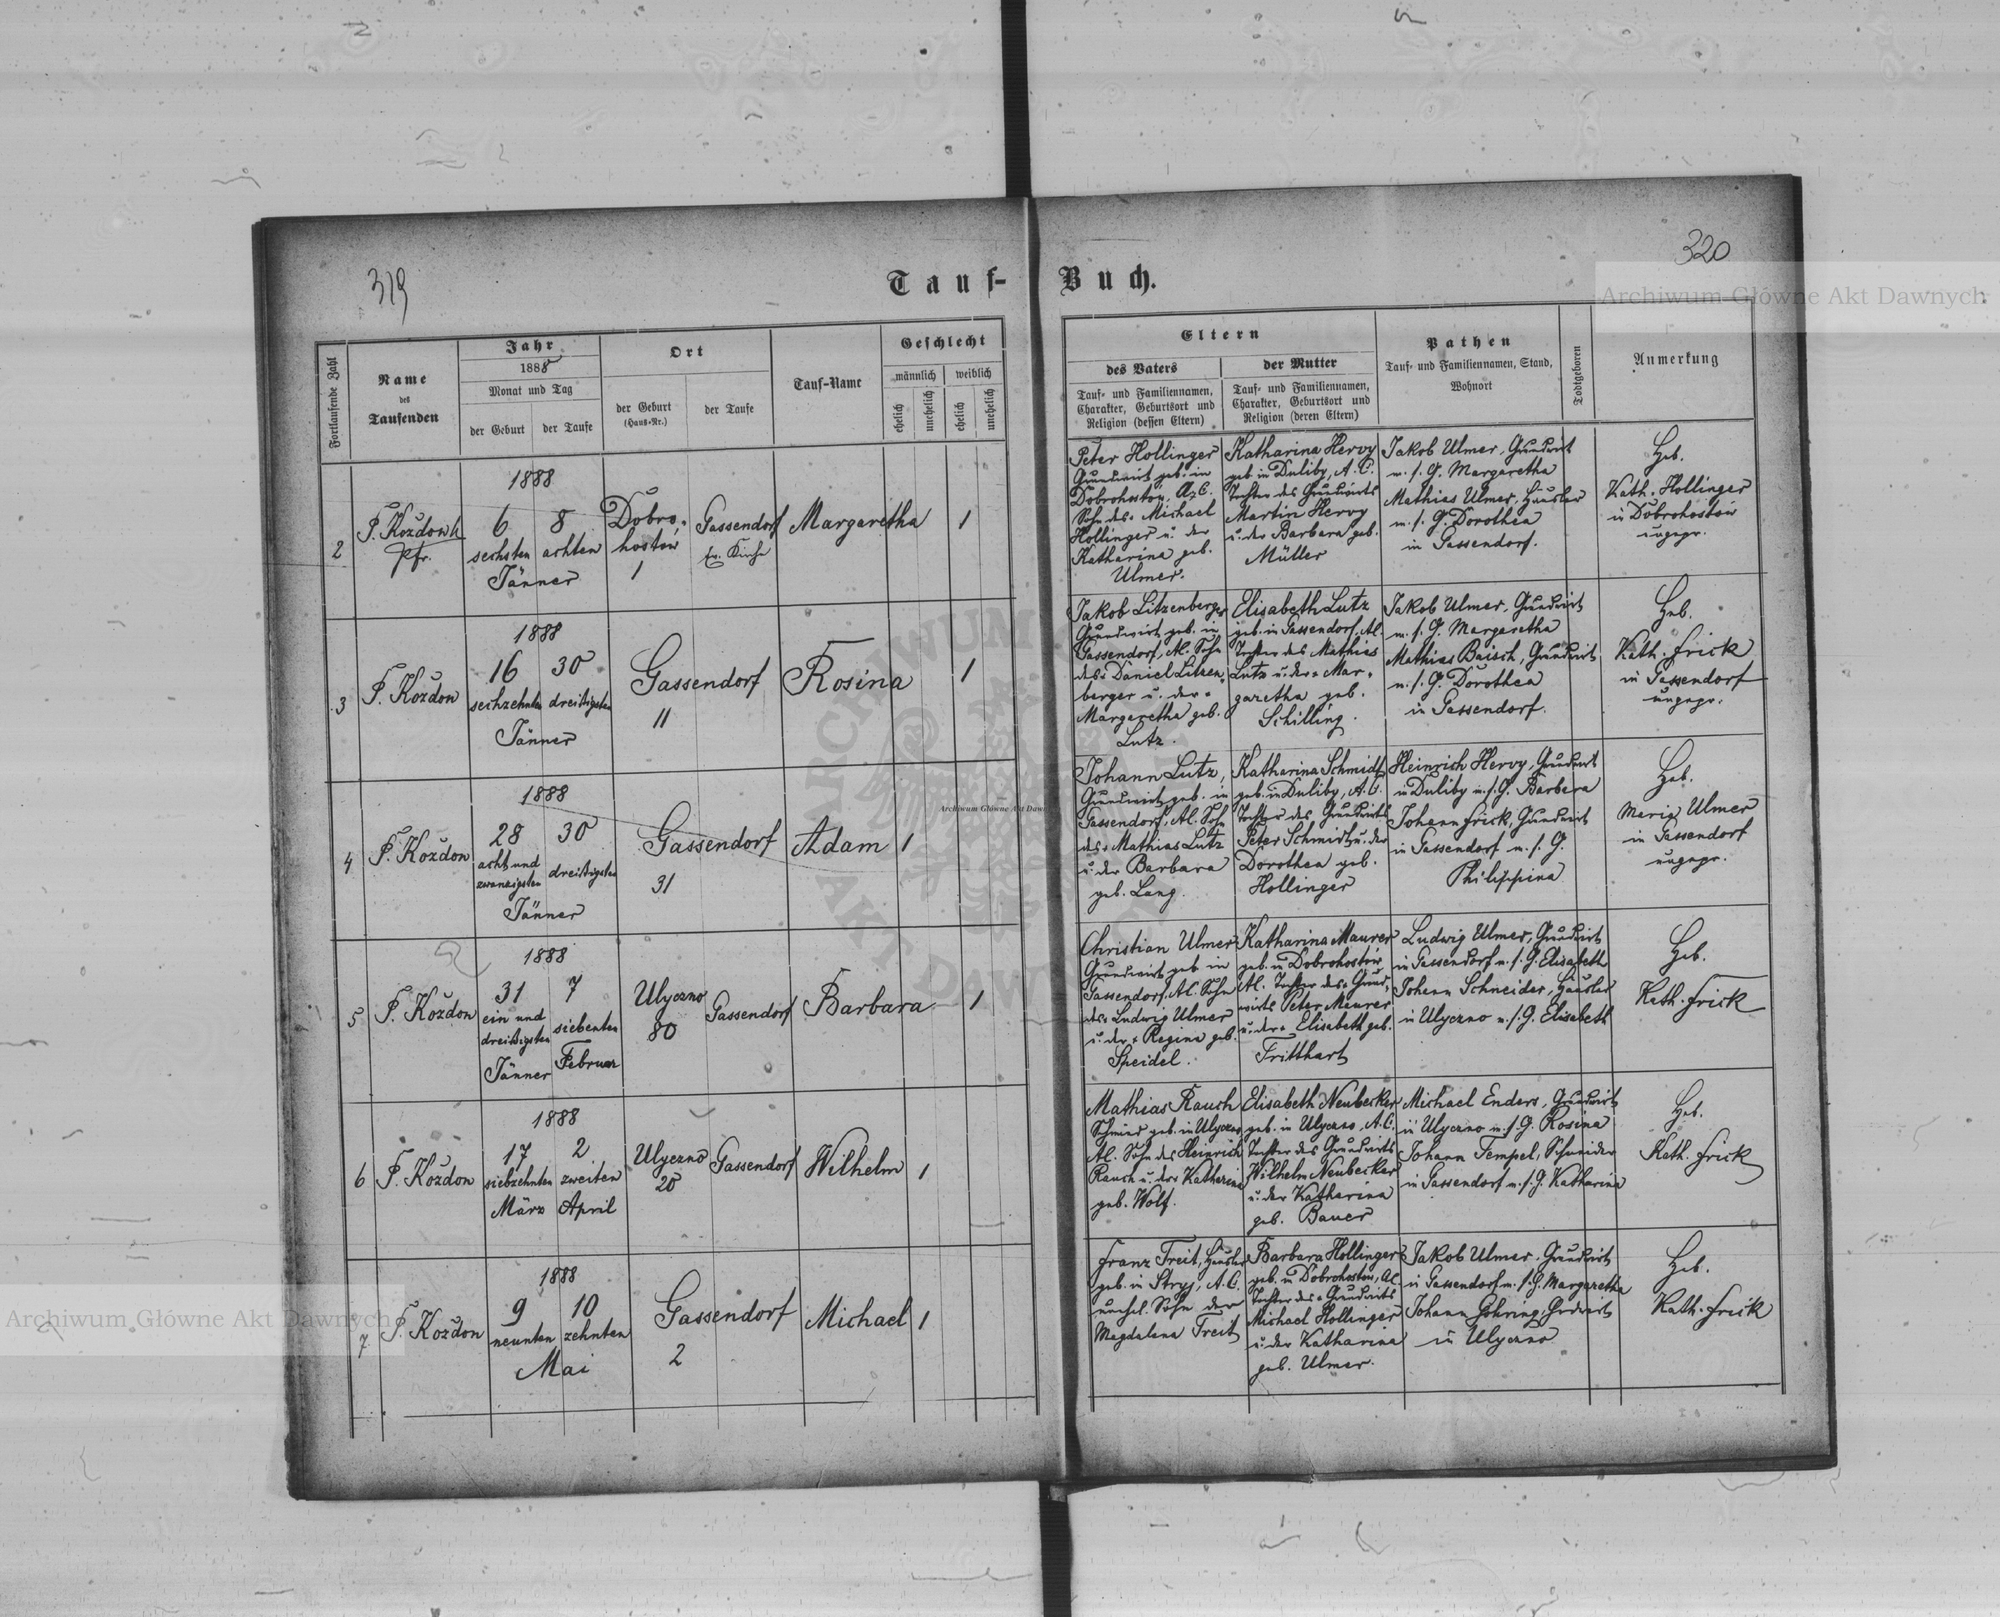 319
320
Tauf-Buch.
Fortlaufende Zahl
Name
des
Taufenden
Jahr
1888
Monat und Tag
der Geburt
der Taufe
Ort
der Geburt
(Haus-Nr.)
der Taufe
Tauf-Name
Geschlecht
männlich
weiblich
ehelich
unehelich
ehelich
unehelich
Eltern
des Vaters
Tauf- und Familiennamen,
Charakter, Geburtsort und
Religion (dessen Eltern)
der Mutter
Tauf- und Familiennamen,
Charakter, Geburtsort und
Religion (deren Eltern)
Pathen
Tauf- und Familiennamen, Stand,
Wohnort
Todtgeboren
Anmerkung
2
Pfr.
1888
6
sechsten
8
achten
Jänner
Dobro-
hostów
1
Gassendorf
Ev. Kirche
Margaretha
1
Peter Hollinger
Grundwirt geb. in
Dobrohostów, A. C.
Sohn des Michael
Hollinger u. der
Katharina geb.
Ulmer.
Katharina Hervy
geb. in Duliby, A. C.
Tochter des Grundwirts
Martin Hervy
u. der Barbara geb.
Müller
Jakob Ulmer, Grundwirt
m. s. G. Margaretha
Mathias Ulmer, Häusler
m. s. G. Dorothea
in Gassendorf.
Heb.
Kath. Hollinger
in Dobrohostów
ungepr.
3
P. Koždon
1888
16
sechzehnten
30
dreißigsten
Jänner
Gassendorf
11
Rosina
1
Jakob Litzenberger
Grundwirt geb. in
Gassendorf, Al. Sohn
des Daniel Litzen-
berger u. der
Margaretha geb.
Lutz.
Elisabeth Lutz
geb. in Gassendorf, Al.
Tochter des Mathias
Lutz u. der Mar-
garetha geb.
Schilling.
Jakob Ulmer, Grundwirt
m. s. G. Margaretha
Mathias Baisch, Grundwirt
m. s. G. Dorothea
in Gassendorf.
Heb.
Kath. Frick
in Gassendorf
ungepr.
4
P. Koždon
1888
28
acht und
zwanzigsten
30
dreißigsten
Jänner
Gassendorf
31
Adam
1
Johann Lutz,
Grundwirt geb. in
Gassendorf, Al. Sohn
des Mathias Lutz
u. der Barbara
geb. Lang.
Katharina Schmidt
geb. in Duliby, A. C.
Tochter des Grundwirts
Peter Schmidt u. der
Dorothea geb.
Hollinger
Heinrich Hervy, Grundwirt
in Duliby m. s. G. Barbara
Johann Frick, Grundwirt
in Gassendorf m. s. G.
Philippina
Heb.
Maria Ulmer
in Gassendorf
ungepr.
5
P. Koždon
1888
31
ein und
dreißigsten
Jänner
7
siebenten
Februar
Ulyczno
80
Gassendorf
Barbara
1
Christian Ulmer
Grundwirt geb. in
Gassendorf, Al. Sohn
des Ludwig Ulmer
u. der Regina geb.
Speidel.
Katharina Maurer
geb. in Dobrohostów
Al. Tochter des Grund-
wirts Peter Maurer
u. der Elisabeth geb.
Fritthart
Ludwig Ulmer, Grundwirt
in Gassendorf m. s. G. Elisabeth
Johann Schneider, Häusler
in Ulyczno m. s. G. Elisabeth
Heb.
Kath. Frick
6
P. Koždon
1888
17
siebzehnten
März
2
zweiten
April
Ulyczno
20
Gassendorf
Wilhelm
1
Mathias Rauch
Schmied geb. in Ulyczno
Al. Sohn des Heinrich
Rauch u. der Katharina
geb. Wolf.
Elisabeth Neubecker
geb. in Ulyczno, A. C.
Tochter des Grundwirts
Wilhelm Neubecker
u. der Katharina
geb. Bauer
Michael Enders, Grundwirt
in Ulyczno m. s. G. Rosina
Johann Tempel, Schneider
in Gassendorf m. s. G. Katharina
Heb.
Kath. Frick
7
P. Koždon
1888
9
neunten
10
zehnten
Mai
Gassendorf
2
Michael
1
Franz Treit, Häusler
geb. in Stryj, A. C.
unehel. Sohn der
Magdalena Treit
Barbara Hollinger
geb. in Dobrohostów, AC
Tochter des Grundwirts
Michael Hollinger
u. der Katharina
geb. Ulmer.
Jakob Ulmer, Grundwirt
in Gassendorf m. s. G. Margaretha
Johann Gohring, Grdwirt
in Ulyczno
Heb.
Kath. Frick
Archiwum Główne Akt Dawnych
Archiwum Główne Akt Dawnych
Archiwum Główne Akt Dawn